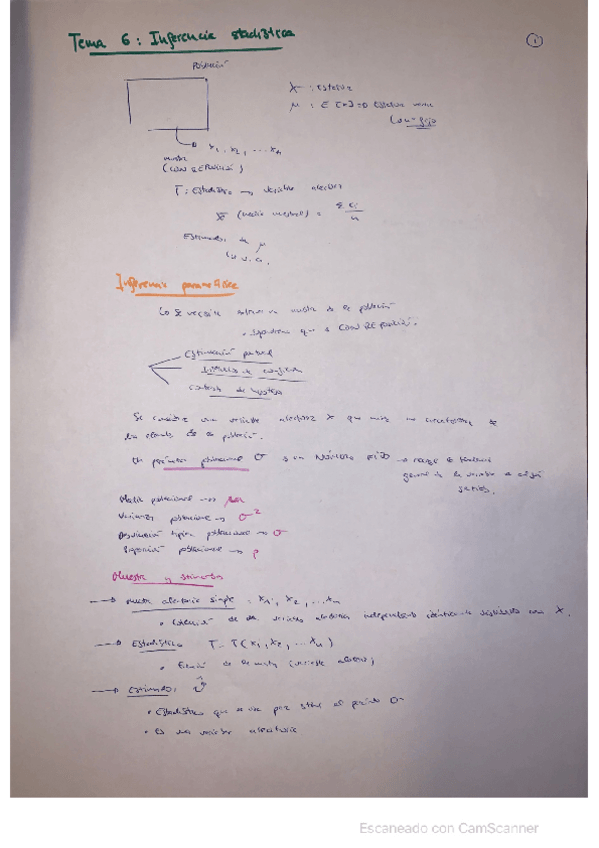 Tema 6: Inferencia estadística
1
Población
X : Estatura
μ : E[X] = Estatura media
x1, x2, ... xn
muestra
T: Estadístico → variable aleatoria
x̄ (media muestral) = Σxi / n
Estimador de μ
v.a.
Inferencia paramétrica
muestra de la población
Estimación puntual
Intervalos de confianza
Contraste de hipótesis
Se considera una variable aleatoria X que mide una característica de
los elementos de la población.
Un parámetro poblacional θ es un NÚMERO FIJO → recoge
general de la variable
Media poblacional → μ
Varianza poblacional → σ²
Desviación típica poblacional → σ
Proporción poblacional → p
Muestra y estimadores
→ Muestra aleatoria simple : x1, x2, ... xn
• Colección de variables aleatorias independientes idénticamente distribuidas con X.
→ Estadístico T = T(x1, x2, ... xn)
• Función de la muestra (variable aleatoria)
→ Estimador θ̂
• Estadístico que se usa para estimar el parámetro θ
• Es una variable aleatoria
Escaneado con CamScanner